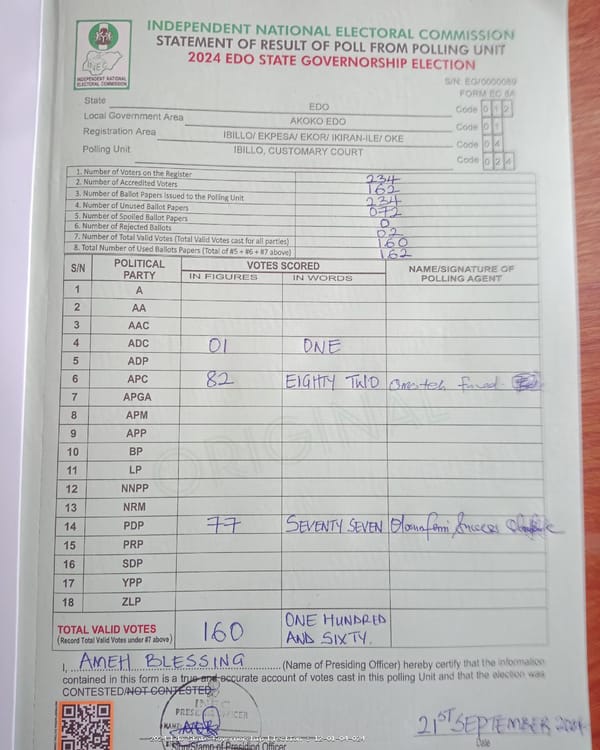 INEC
INDEPENDENT NATIONAL
ELECTORAL COMMISSION
INDEPENDENT NATIONAL ELECTORAL COMMISSION
STATEMENT OF RESULT OF POLL FROM POLLING UNIT
2024 EDO STATE GOVERNORSHIP ELECTION
S/N: EG/0000089
FORM EC 8A
State EDO Code 0 1 2
Local Government Area AKOKO EDO Code 0 1
Registration Area IBILLO/ EKPESA/ EKOR/ IKIRAN-ILE/ OKE Code 0 4
Polling Unit IBILLO, CUSTOMARY COURT Code 0 2 4
1. Number of Voters on the Register 234
2. Number of Accredited Voters 162
3. Number of Ballot Papers Issued to the Polling Unit 234
4. Number of Unused Ballot Papers 072
5. Number of Spoiled Ballot Papers 0
6. Number of Rejected Ballots 02
7. Number of Total Valid Votes (Total Valid Votes cast for all parties) 160
8. Total Number of Used Ballots Papers (Total of #5 + #6 + #7 above) 162
S/N POLITICAL PARTY VOTES SCORED NAME/SIGNATURE OF POLLING AGENT
IN FIGURES IN WORDS
1 A
2 AA
3 AAC
4 ADC 01 ONE
5 ADP
6 APC 82 EIGHTY TWO
7 APGA
8 APM
9 APP
10 BP
11 LP
12 NNPP
13 NRM
14 PDP 77 SEVENTY SEVEN
15 PRP
16 SDP
17 YPP
18 ZLP
ORIGINAL
TOTAL VALID VOTES 160 ONE HUNDRED
(Record Total Valid Votes under #7 above) AND SIXTY.
I, AMEH BLESSING (Name of Presiding Officer) hereby certify that the information
contained in this form is a true and accurate account of votes cast in this polling Unit and that the election was
CONTESTED/NOT CONTESTED.
INEC
PRESIDING OFFICER
21ST SEPTEMBER 2024
Sign/Stamp of Presiding Officer Date